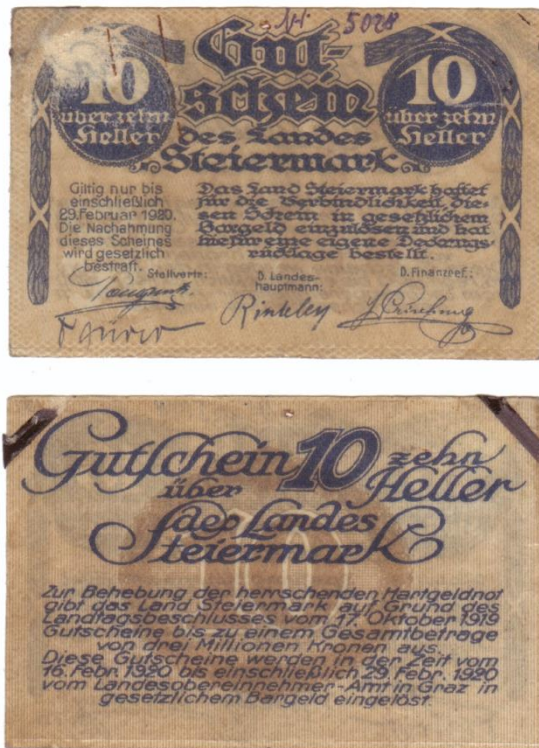 N: 5028
Gut-
schein
des Landes
Steiermark
10
über zehn
Heller
10
über zehn
Heller
Giltig nur bis
einschließlich
29. Februar 1920.
Die Nachahmung
dieses Scheines
wird gesetzlich
bestraft.
Das Land Steiermark haftet
für die Verbindlichkeit, die-
sen Schein in gesetzlichem
Bargeld einzulösen und hat
hiefür eine eigene Deckungs-
rücklage bestellt.
Stellvertr.:
D. Landes-
hauptmann:
D. Finanzref.:
Rintelen
Gutschein 10 zehn
über Heller
des Landes
Steiermark
10
Zur Behebung der herrschenden Hartgeldnot
gibt das Land Steiermark auf Grund des
Landtagsbeschlusses vom 17. Oktober 1919
Gutscheine bis zu einem Gesamtbetrage
von drei Millionen Kronen aus.
Diese Gutscheine werden in der Zeit vom
16. Febr. 1920 bis einschließlich 29. Febr. 1920
vom Landesobereinnehmer-Amt in Graz in
gesetzlichem Bargeld eingelöst.